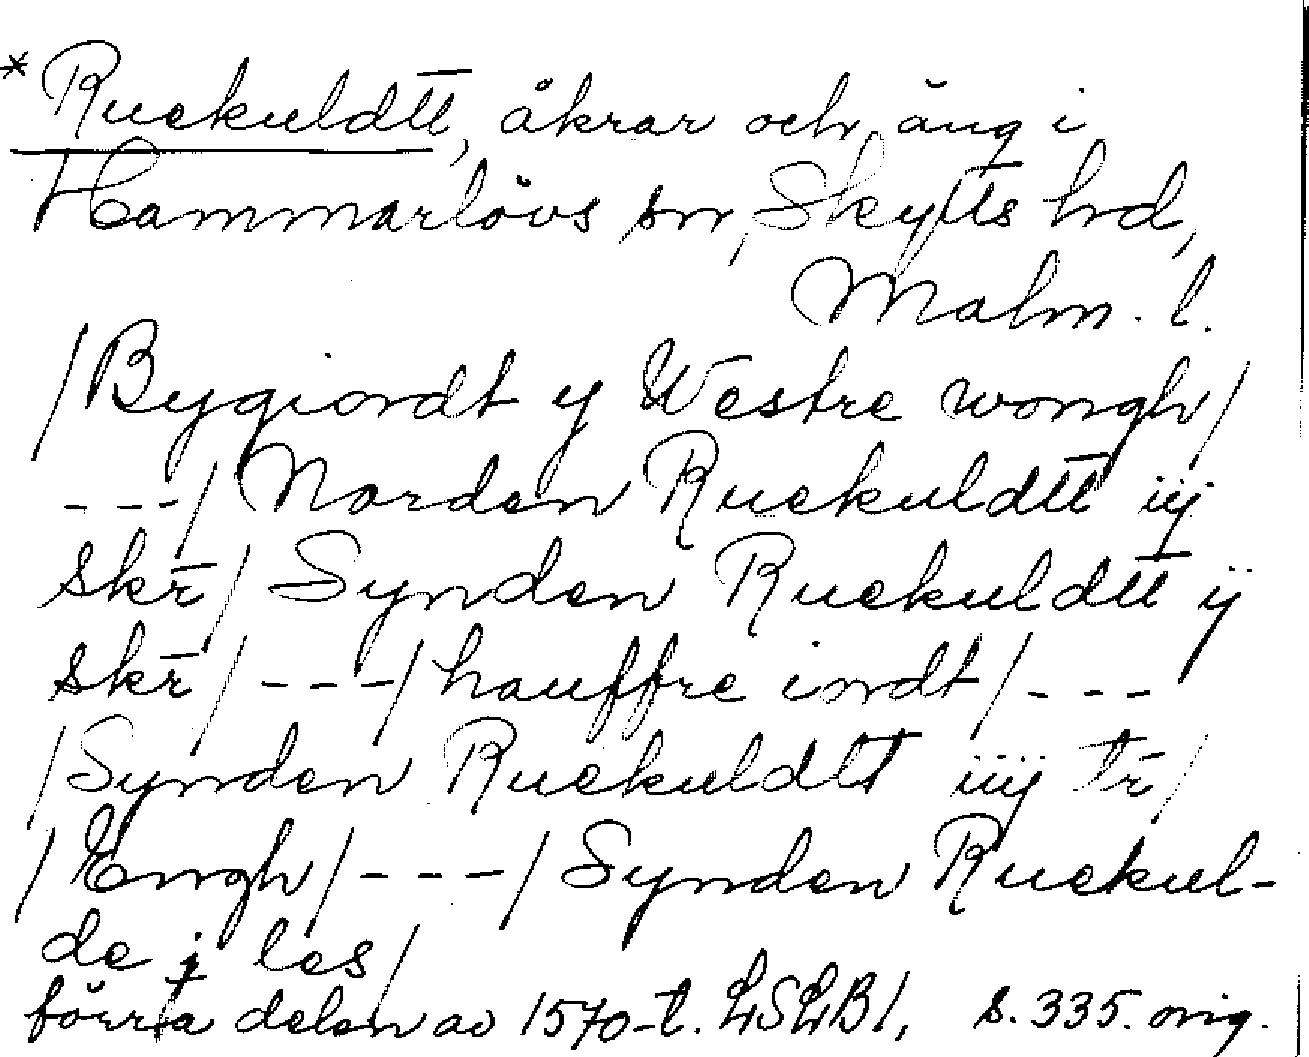 *Ruekuldtt̄, åkrar och äng i
Hammarlövs sn, Skytts hd,
Malm. l.
/Bygiordt y Westre wongh/
---/ Norden Ruekuldtt̄ iij
skr̄/ Synden Ruekuldtt̄ ij
skr̄/ ---/ hauffre indt/ ---
/Synden Ruekuldtt iiij tr̄/
/Engh/ ---/ Synden Ruekul-
de j les/
förra delen av 1570-t. LSLB1, s. 335. orig.